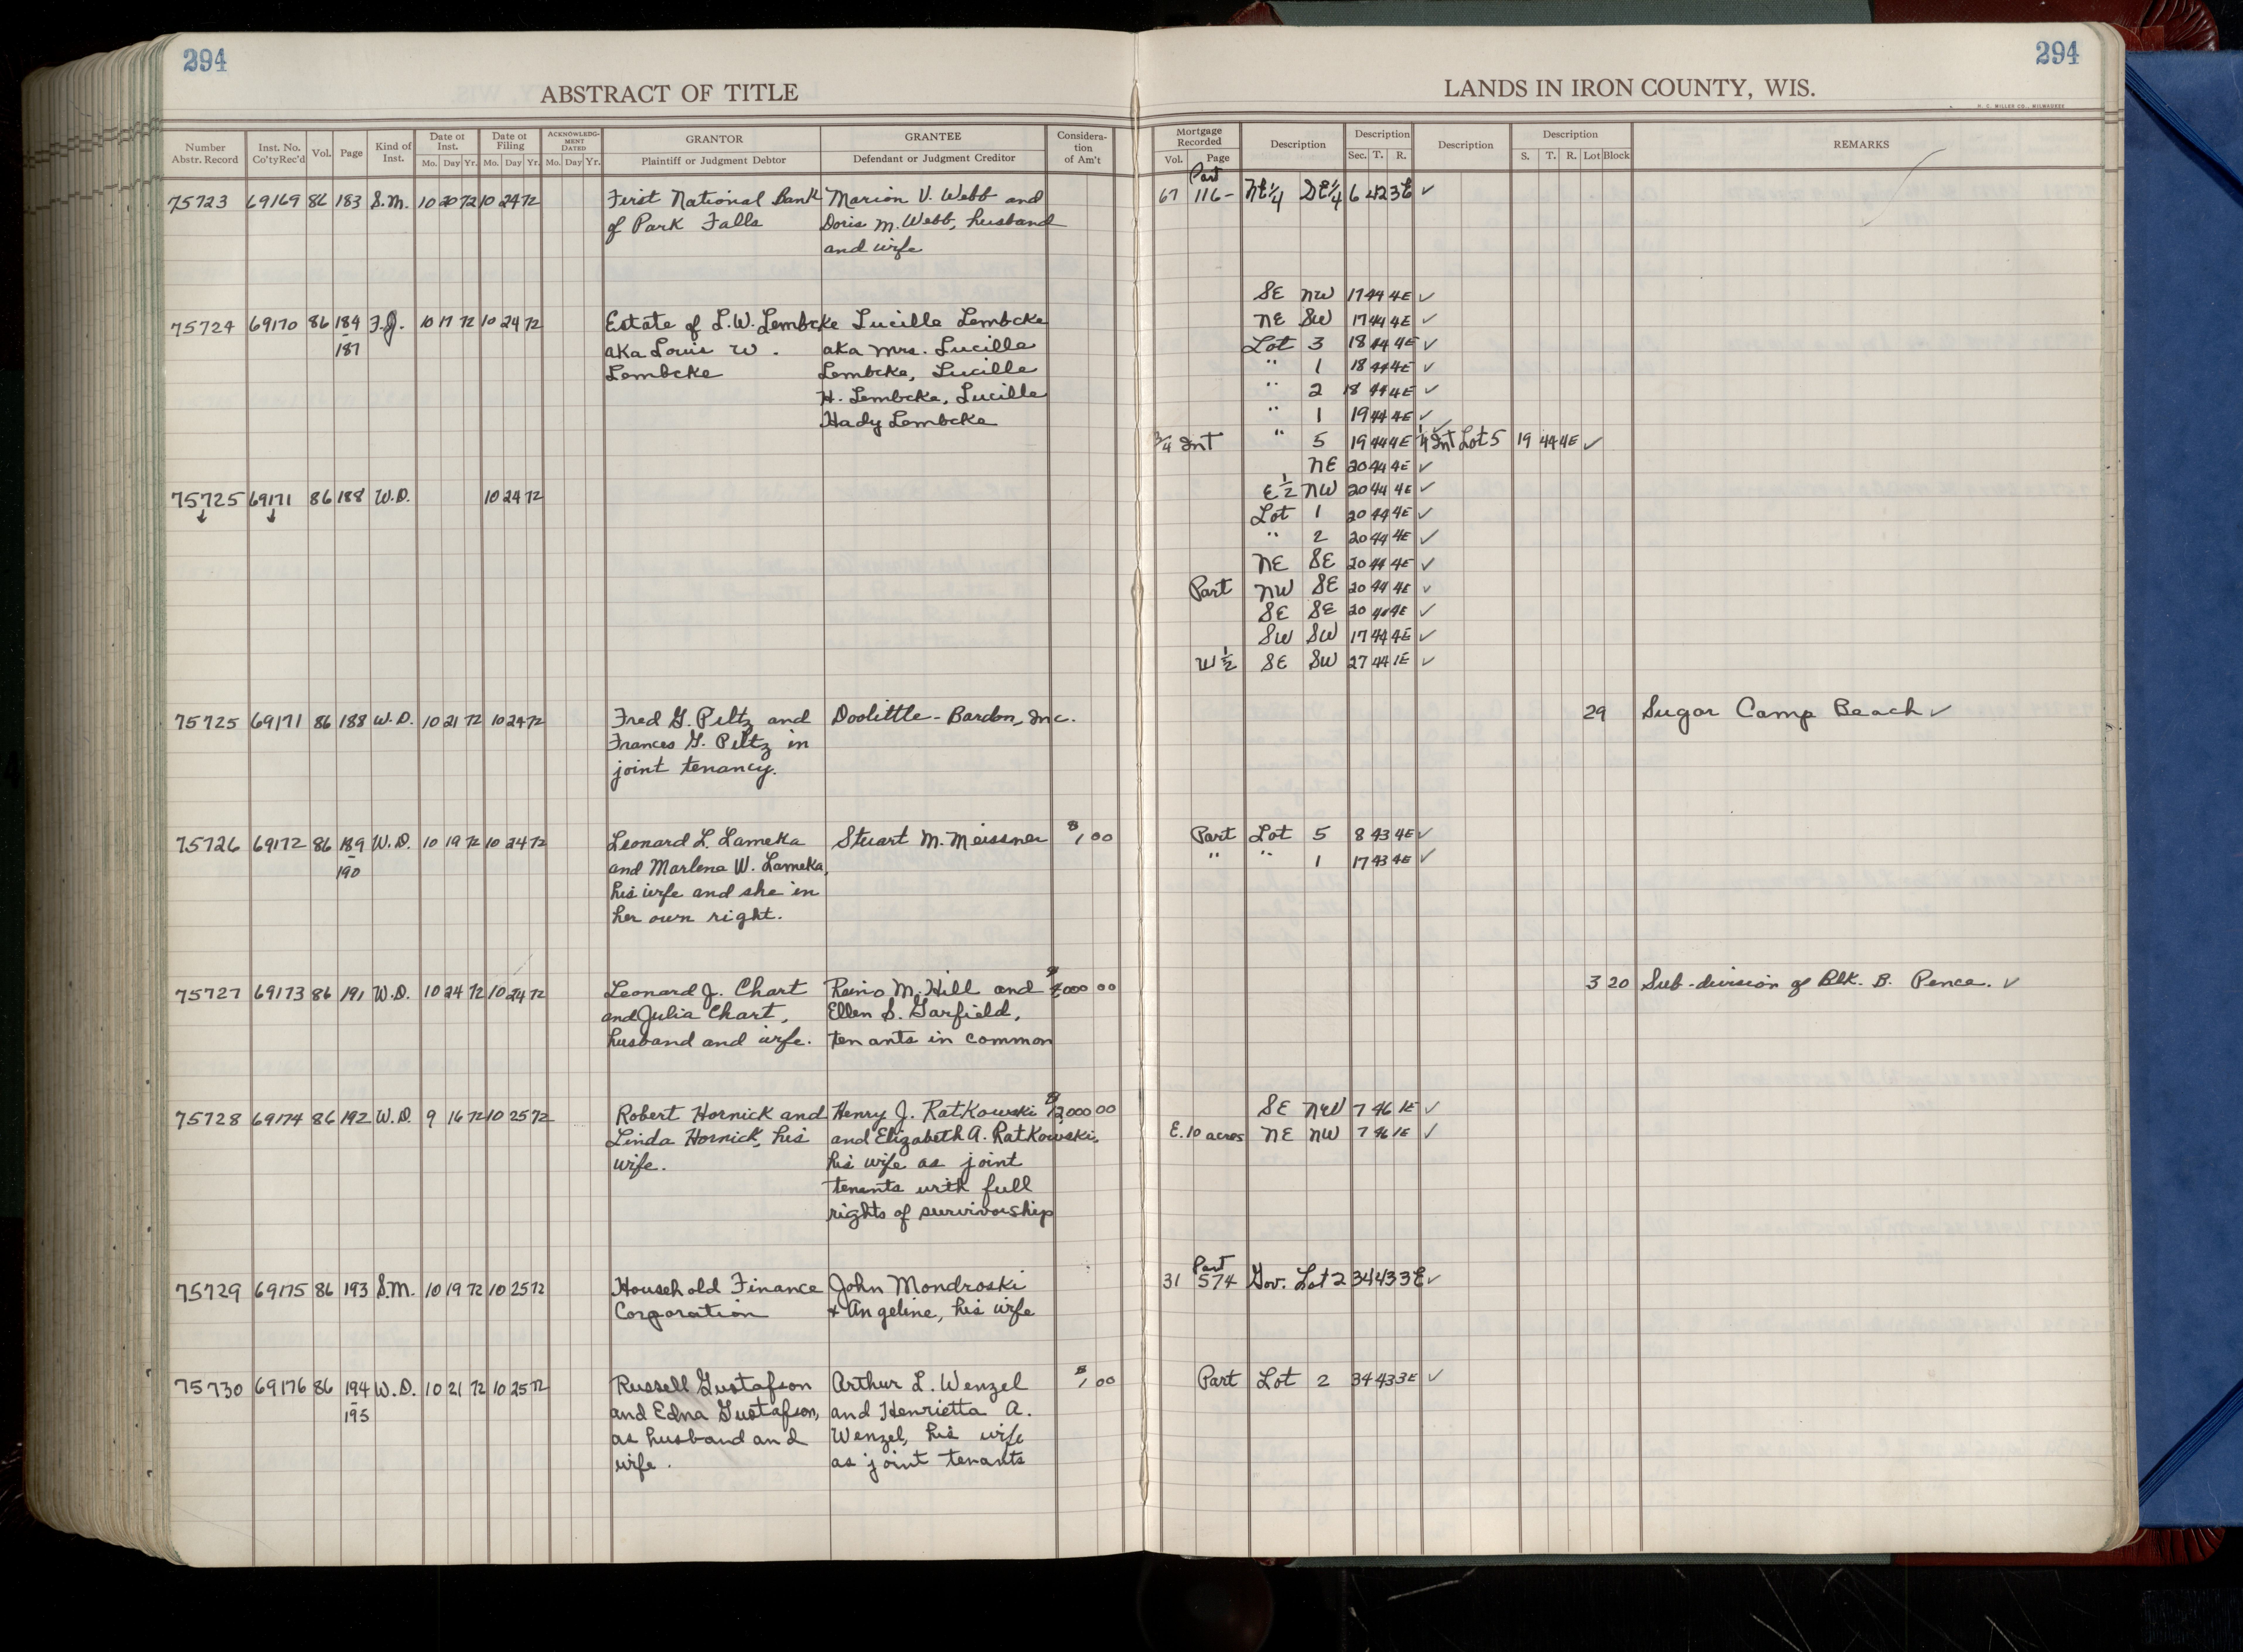 294
294
ABSTRACT OF TITLE
LANDS IN IRON COUNTY, WIS.
H. C. MILLER CO., MILWAUKEE
Number Abstr. Record Inst. No. Co'tyRec'd Vol. Page Kind of Inst. Date of Inst. Mo. Day Yr. Date of Filing Mo. Day Yr. ACKNOWLEDGMENT DATED Mo. Day Yr. GRANTOR Plaintiff or Judgment Debtor GRANTEE Defendant or Judgment Creditor Consideration of Am't
Mortgage Recorded Vol. Page Description Description Sec. T. R. Description Description S. T. R. Lot Block REMARKS
Part
75723 69169 86 183 S.M. 10 20 72 10 24 72 First National Bank Marion V. Webb and 67 116- NE 1/4 SE 1/4 6 42 3E ✓
of Park Falls Doris M. Webb, husband
and wife
SE NW 17 44 4E ✓
75724 69170 86 184 F.J. 10 17 72 10 24 72 Estate of L.W. Lembcke Lucille Lembcke NE SW 17 44 4E ✓
- 187 aka Louis W. aka Mrs. Lucille Lot 3 18 44 4E ✓
Lembcke Lembcke, Lucille " 1 18 44 4E ✓
H. Lembcke, Lucille " 2 18 44 4E ✓
Hady Lembcke " 1 19 44 4E ✓
3/4 Int " 5 19 44 4E 1/4 Int Lot 5 19 44 4E ✓
NE 20 44 4E ✓
75725 69171 86 188 W.D. 10 24 72 E 1/2 NW 20 44 4E ✓
↓ ↓ Lot 1 20 44 4E ✓
" 2 20 44 4E ✓
NE SE 20 44 4E ✓
Part NW SE 20 44 4E ✓
SE SE 20 44 4E ✓
SW SW 17 44 4E ✓
W 1/2 SE SW 27 44 1E ✓
75725 69171 86 188 W.D. 10 21 72 10 24 72 Fred G. Peltz and Doolittle-Bardon, Inc. 29 Sugar Camp Beach ✓
Frances G. Peltz in
joint tenancy.
75726 69172 86 189 W.D. 10 19 72 10 24 72 Leonard L. Lameka Stuart M. Meissner $1 00 Part Lot 5 8 43 4E ✓
- 190 and Marlene W. Lameka, " " 1 17 43 4E ✓
his wife and she in
her own right.
75727 69173 86 191 W.D. 10 24 72 10 24 72 Leonard J. Chart Reino M. Hill and 000 00 3 20 Sub-division of Blk. B. Pence. ✓
and Julia Chart, Ellen S. Garfield,
husband and wife. tenants in common
75728 69174 86 192 W.D. 9 16 72 10 25 72 Robert Hornick and Henry J. Ratkowski 000 00 SE NW 7 46 1E ✓
Linda Hornick, his and Elizabeth A. Ratkowski, E. 10 acres NE NW 7 46 1E ✓
wife. his wife as joint
tenants with full
rights of survivorship
Part
75729 69175 86 193 S.M. 10 19 72 10 25 72 Household Finance John Mondroski 31 574 Gov. Lot 2 34 43 3E ✓
Corporation + Angeline, his wife
75730 69176 86 194 W.D. 10 21 72 10 25 72 Russell Gustafson Arthur L. Wenzel $1 00 Part Lot 2 34 43 3E ✓
- 195 and Edna Gustafson, and Henrietta A.
as husband and Wenzel, his wife
wife. as joint tenants